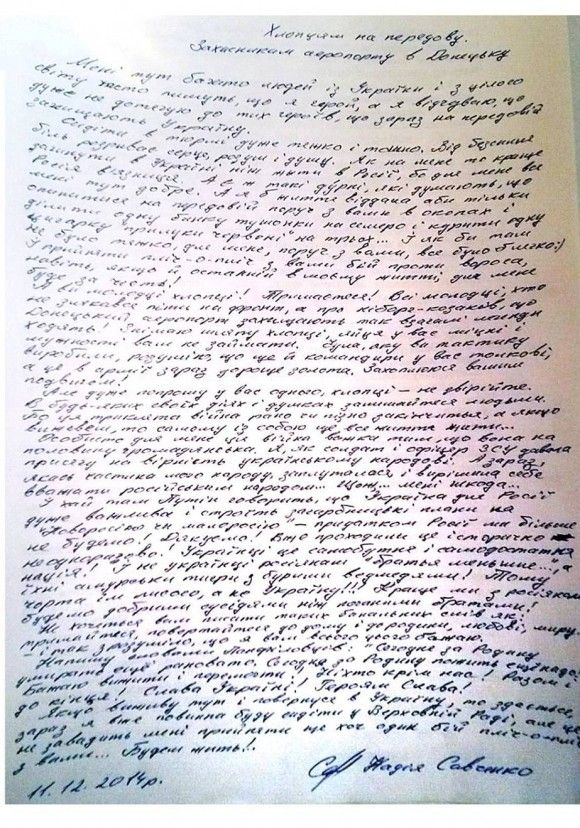 Хлопцям на передову.
Захисникам аеропорту в Донецьку
Мені тут багато людей із України і з цілого
світу часто пишуть, що я герой, а я відчуваю, що
дуже не дотягую до тих героїв, що зараз на передовій
захищають Україну.
Сидіти в тюрмі дуже тяжко і тошно. Від безсилля
біль розриває серце, розум і душу. Як на мене то краще
загинути в Україні, ніж жити в Росії, бо для мене вся
Росія в'язниця. А є ж такі дурні, які думають, що
мені тут добре. А я б життя віддала аби тільки
опинитися на передовій поруч з вами в окопах і
ділити одну банку тушонки на семеро і курити одну
цигарку Прилуки червоні на трьох... І як би там
не було тяжко, для мене, поруч з вами, все було б легко:)
І прийняти пліч-о-пліч з вами бій проти ворога,
навіть якщо й останній в моєму житті, для мене
буде за честь!
Ви молодці хлопці! Тримайтеся! Всі молодці, хто
не злякався піти на фронт, а про кіборг-козаків, що
Донецький аеропорт захищають так взагалі легенди
ходять! Знімаю шляпу хлопці, яйця у вас міцні і
мужності вам не займати. Чула, яку ви тактику
виробили, розумію, що ще й командири у вас толкові,
а це в армії зараз дорожче золота. Захоплююся вашим
подвигом!
Але дуже попрошу у вас одного, хлопці – не звірійте.
В будь-яких своїх діях і думках залишайтеся людьми.
Бо ця проклята війна рано чи пізно закінчиться, а якщо
виживеш, то самому із собою ще все життя жити...
Особисто для мене ця війна важка тим, що вона на
половину громадянська. Я, як солдат і офіцер ЗСУ давала
присягу на вірність українському народові. Зараз,
якась частина того народу, заплуталася і вирішила себе
вважати російським народом... Щож... мені шкода...
І хай там Путін говорить, що Україна для Росії
дуже важлива і строїть загарбницькі плани на
"Новоросію чи малоросію" – придатком Росії ми більше
не будемо! Дякуємо! Вже проходили це історично
неодноразово! Українці це самобутня і самодостатня
нація! І не українці росіянам "братья меньшие...", а
їхні амурські тигри з бурими ведмедями! Тому
чорта їм лисого, а не Україну!!! Краще ми з росіянами
будемо добрими сусідами ніж поганими братами!
Не хочеться вам писати таких банальних слів як:
тримайтеся, повертайтеся до дому і до родини, любові, миру
і так зрозуміло, що я вам всього цього бажаю.
Напишу словами Панфіловців: "Сегодня за Родину
умирать еще рановато. Сегодня за Родину пожить еще надо."
Бажаю вижити і перемогти! Ніхто крім нас! Разом і
до кінця! Слава Україні! Героям Слава!
Якщо виживу тут і повернуся в Україну, то здається,
зараз я вже повинна буду сидіти у Верховній Раді, але це
не завадить мені прийняти ще хоч один бій пліч-о-пліч
з вами... Будем жить!.
11.12.2014р.
Надія Савченко